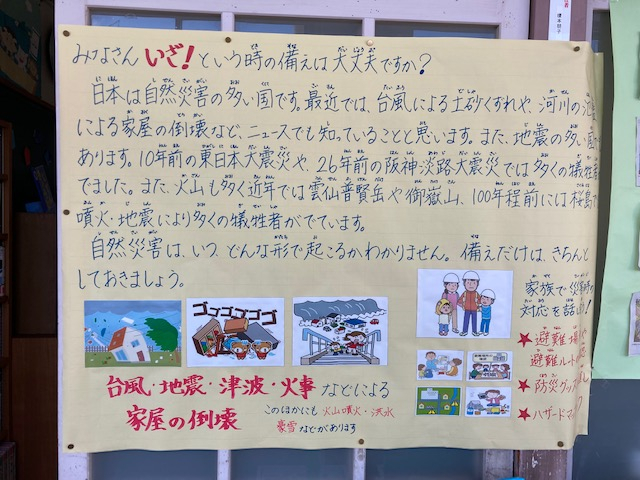 みなさん いざ！という時の備えは大丈夫ですか？
日本は自然災害の多い国です。最近では、台風による土砂くずれや、河川の
による家屋の倒壊など、ニュースでも知っていることと思います。また、地震の多い国
あります。10年前の東日本大震災や、26年前の阪神・淡路大震災では多くの犠牲者
でました。また、火山も多く近年では雲仙普賢岳や御嶽山、100年程前には桜島
噴火・地震により多くの犠牲者がでています。
自然災害は、いつ、どんな形で起こるかわかりません。備えだけは、きちんと
しておきましょう。
ゴゴゴゴゴゴ
台風・地震・津波・火事 などによる
家屋の倒壊
このほかにも 火山噴火・洪水
豪雪などがあります
家族で災害時の
対応を話し
★避難場
避難ルート
★防災グッズ
★ハザードマ